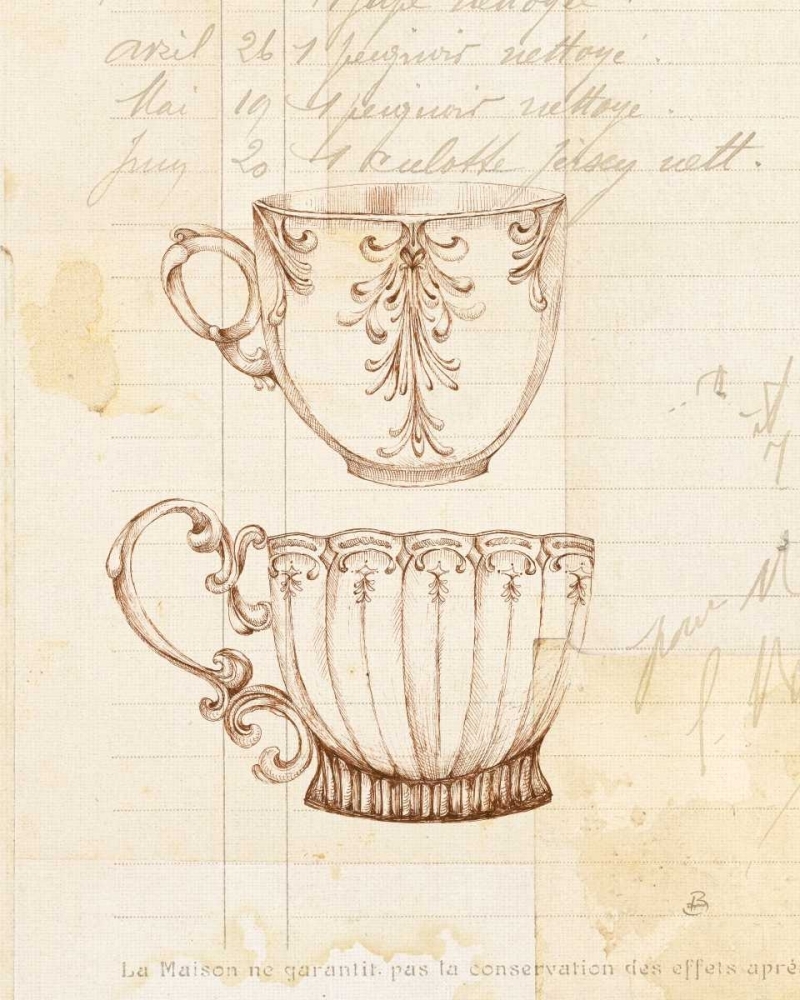 nettoyé
avril 26 1 peignoir nettoyé.
Mai 19 1 peignoir nettoyé.
Juin 20 1 culotte jersey nett.
pour M
B
La Maison ne garantit pas la conservation des effets aprè